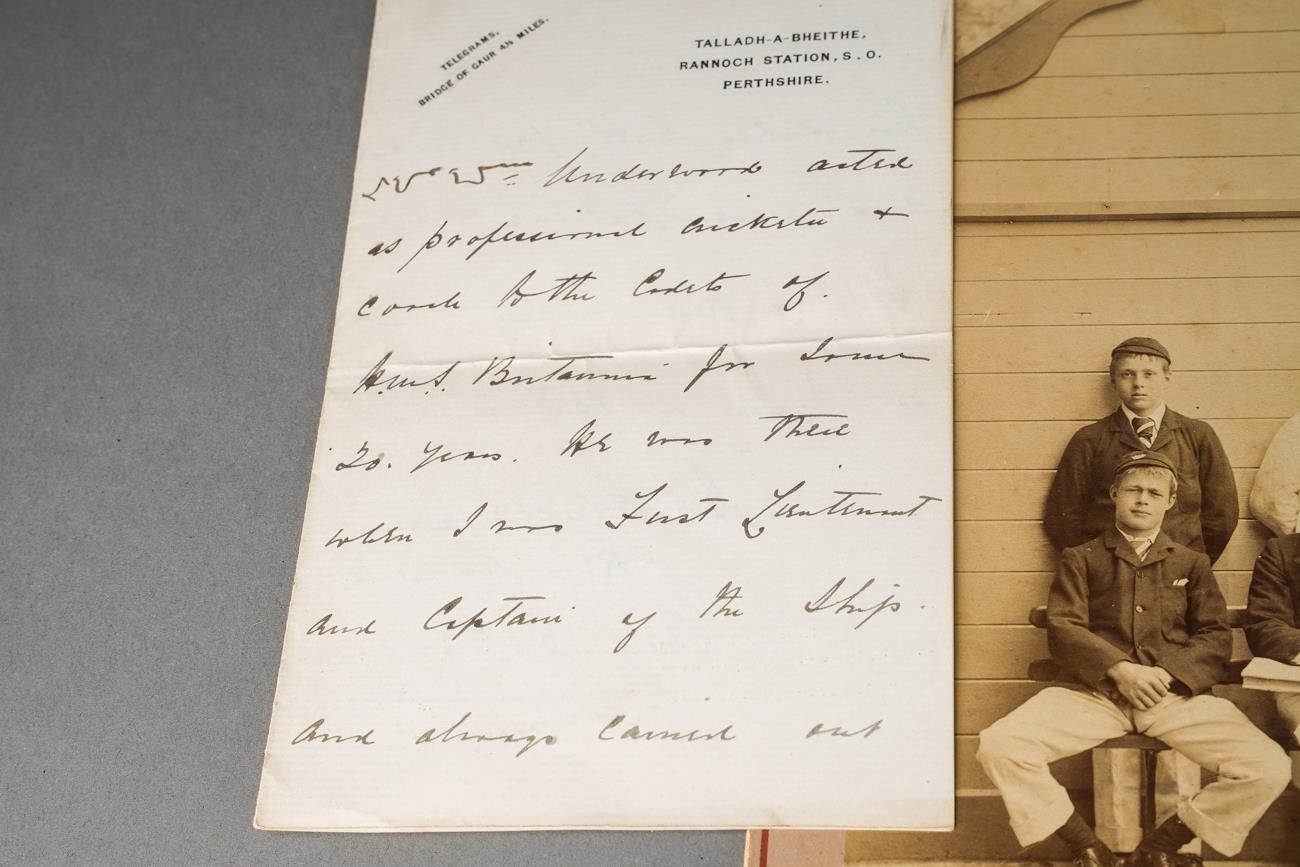 TELEGRAMS,
BRIDGE OF GAUR 4½ MILES.
TALLADH-A-BHEITHE,
RANNOCH STATION, S.O.
PERTHSHIRE.
Underwood acted
as professional cricketer +
coach to the Cadets of.
H.M.S. Britannia for some
20. years. He was there
when I was First Lieutenant
and Captain of the Ship.
and always carried out